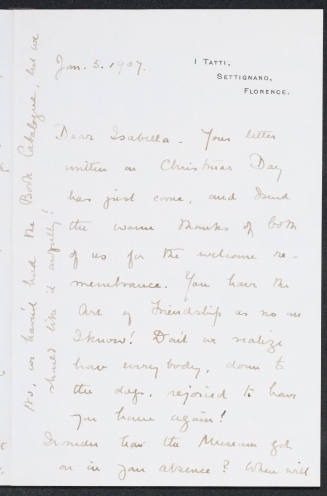 I Tatti,
Settignano,
Florence.
Jan. 5. 1907.
Dear Isabella - Your letter
written on Christmas Day
has just come, and I send
the warm thanks of both
of us for the welcome re-
membrance. You have the
Art of Friendship as no one
I know! Don't we realize
how everybody, down to
the dogs, rejoiced to have
you home again!
I wonder how the Museum got
on in your absence? When will
No, we haven't had the Book Catalogue, but we
should like it awfully!